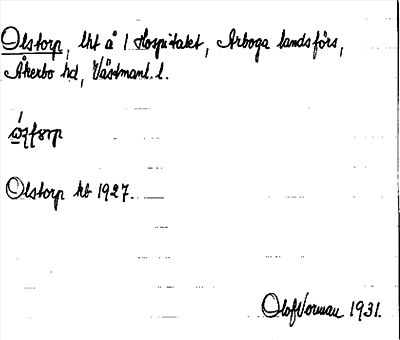 Olstorp, lht å 1 Hospitalet, Arboga landsförs,
Åkerbo hd, Västmanl. l.
Olstorp kb 1927.
Olof Norman 1931.